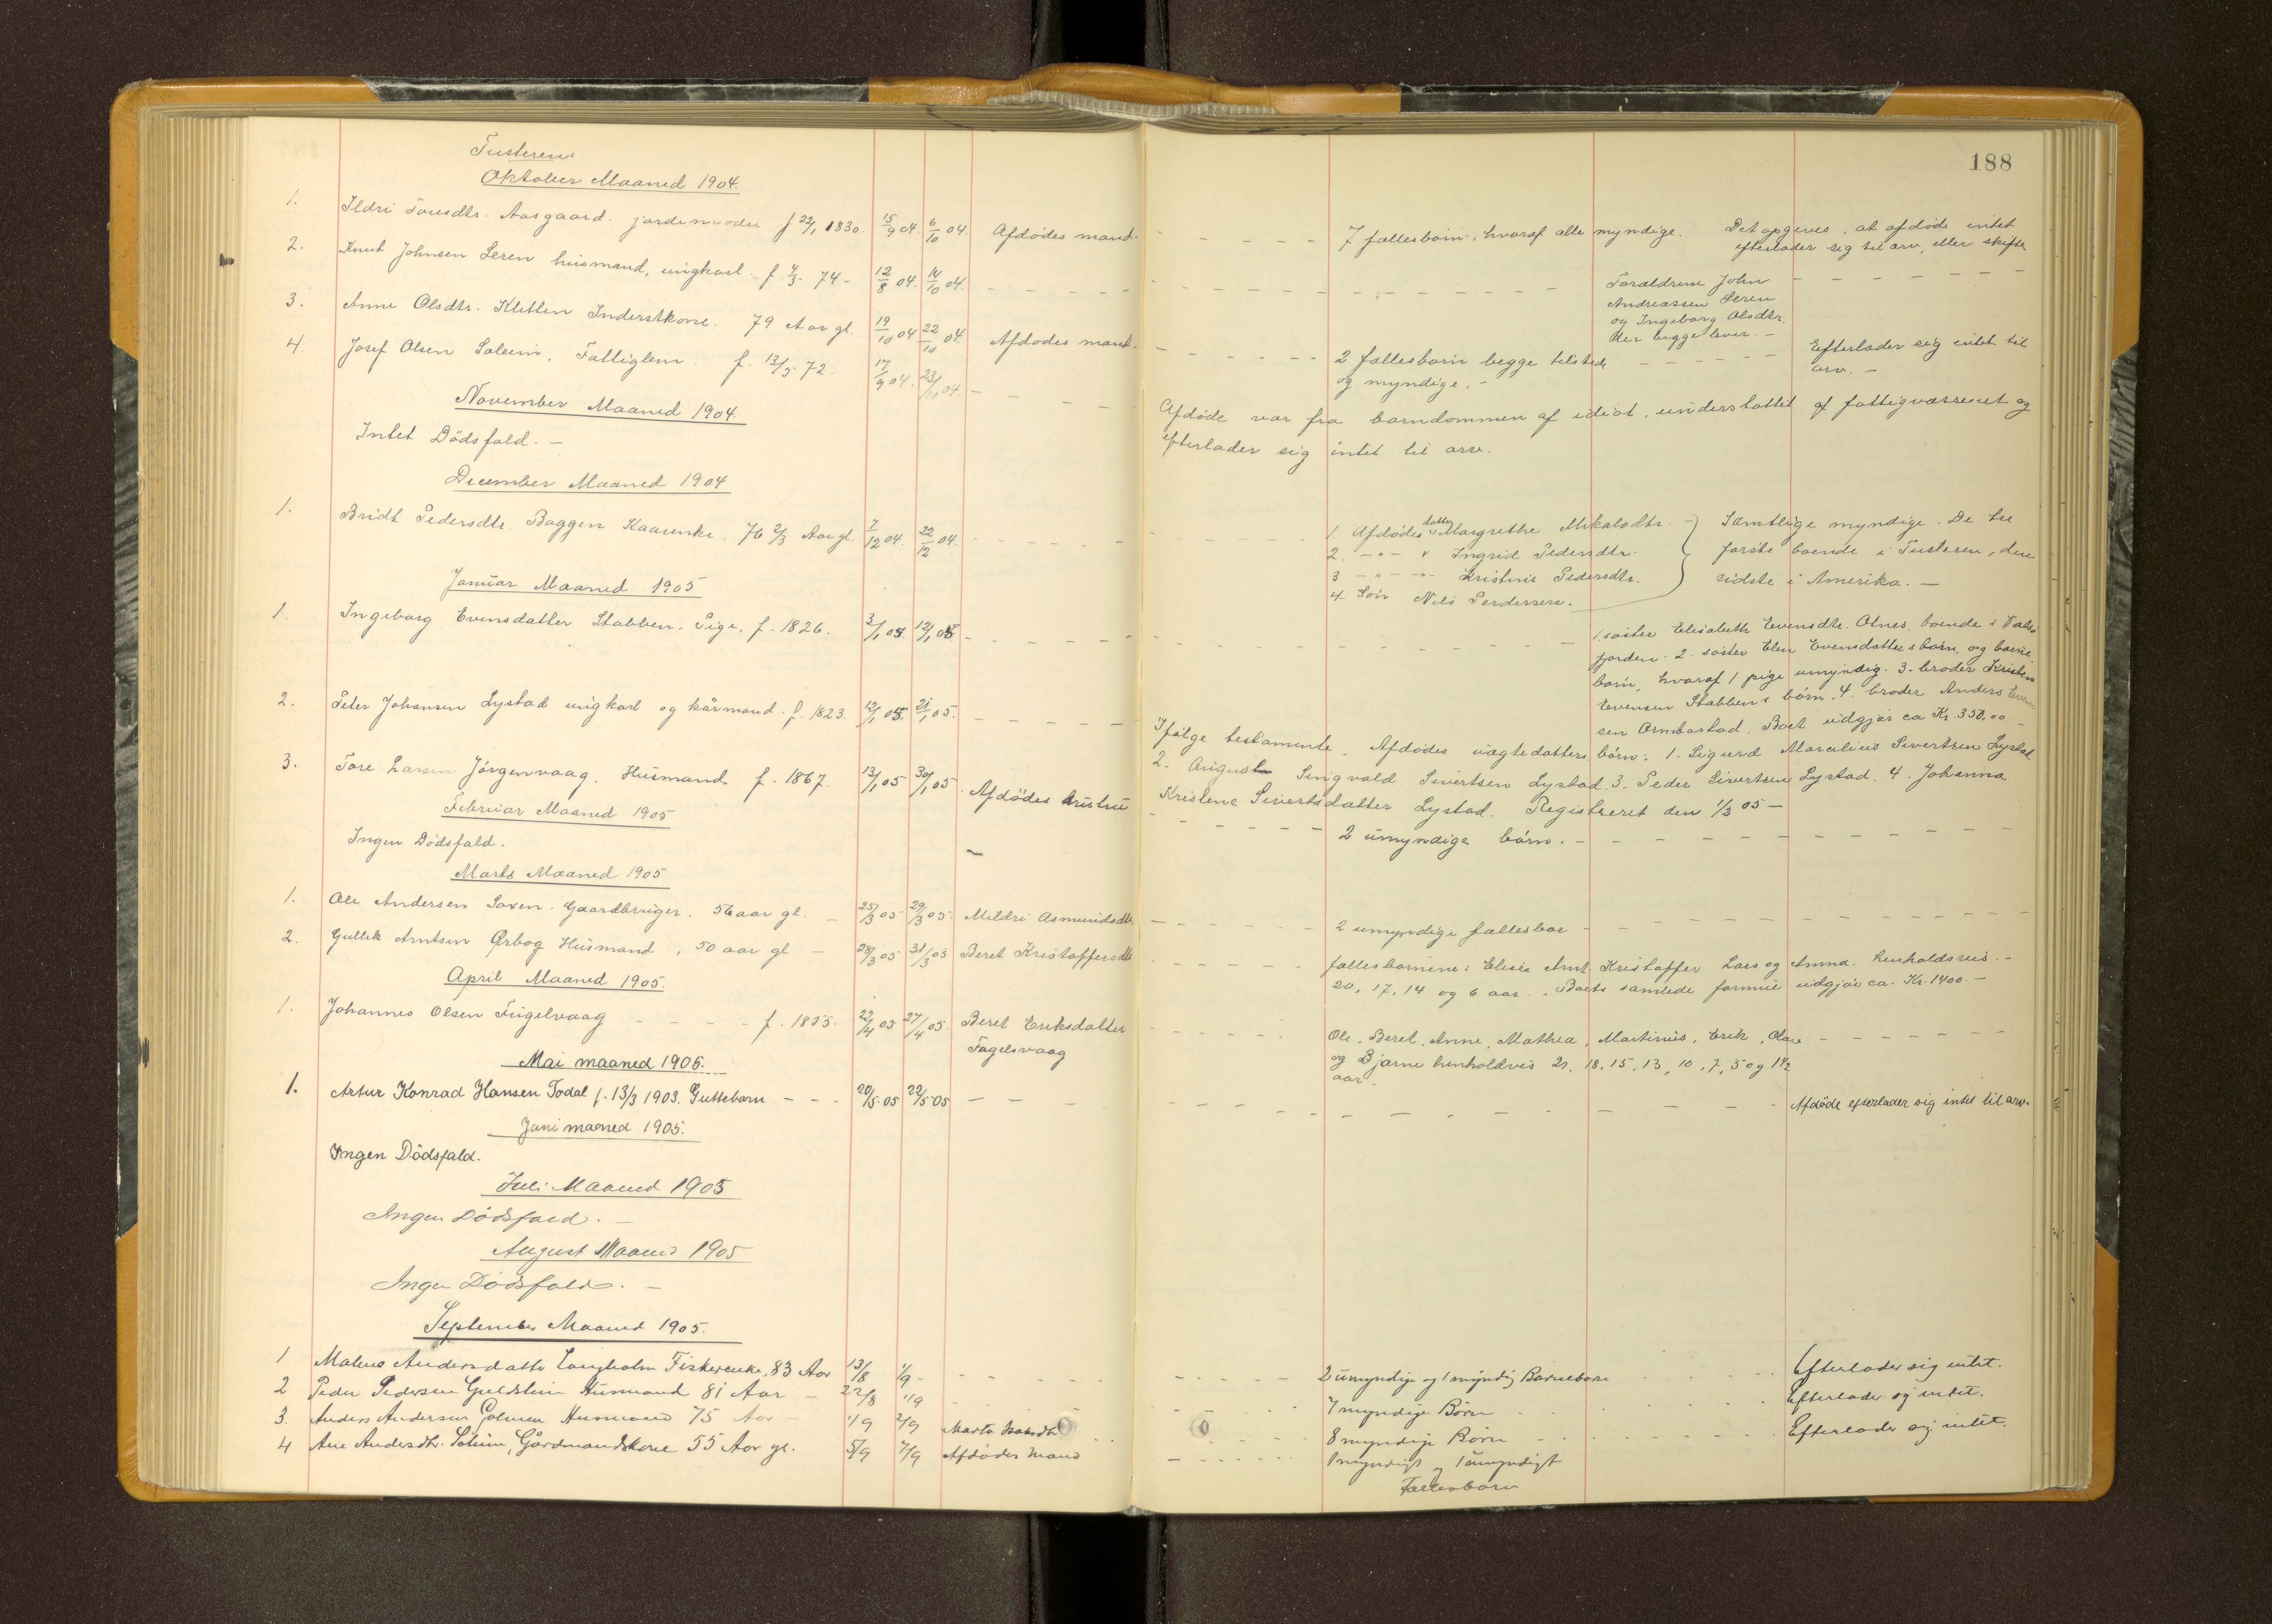 188
Tusteren
Oktober Maaned 1904.
1. Ildri Toresdtr. Aasgaard. jordemoder f 22/1 1830. 15/9 04. 6/10 04. Afdødes mand. - - - - - 7 fællesbørn, hvoraf alle myndige. Det opgives, at afdøde intet
efterlader sig til arv, eller skifte
2. Knut Johnsen Leren husmand, ungkarl. f. 4/3 74 - 12/8 04. 14/10 04. - - - - - Forældrene John
Andreassen Leren
og Ingeborg Olsdtr.
der begge lever. -
3. Anne Olsdtr. Kletten Inderstkone. 79 Aar gl. 19/10 04 22/10 04. Afdødes mand. - - - - - 2 fællesbørn begge tilstede - - - - - Efterlader sig intet til
og myndige. - arv. -
4. Josef Olsen Soleim. Fattiglem. f. 13/5 72. 17/9 04. 23/10 04. - - - - Afdøde var fra barndommen af idiot, understøttet af fattigvæsenet og
efterlader sig intet til arv.
November Maaned 1904.
Intet Dødsfald. -
December Maaned 1904
1. Bridt Pedersdtr. Baggen Kaarenke. 76 2/3 Aar gl. 7/12 04. 22/12 04. - - - - - 1. Afdødes datter Margrethe Mikalsdtr. - Samtlige myndige. De tre
2. - " - " Ingrid Pedersdtr. første boende i Tusteren, den
3 - " - " - Kristine Pedersdtr. sidste i Amerika. -
4. Søn Nils Pedersen.
Januar Maaned 1905
1. Ingeborg Evensdatter Stabben. Pige. f. 1826. 3/1 05. 12/1 05 - - - - - 1. søster Elisabeth Evensdtr. Otnes, boende i Valsø
fjorden. 2. søster Elen Evensdatters børn, og barne
børn, hvoraf 1 pige umyndig. 3. broder Kristen
Evensen Stabbens børn. 4. broder Anders Even
sen Ormbostad. Boet udgjør ca Kr. 350.00 -
2. Peter Johansen Lystad ungkarl og kårmand. f. 1823. 12/1 05. 21/1 05. - - - - - Ifølge testamente. Afdødes uægtedatters børn: 1. Sigurd Marelius Sivertsen Lystad
2. August Singvald Sivertsen Lystad. 3. Peder Sivertsen Lystad. 4. Johanna
Kristene Sivertsdatter Lystad. Registreret den 1/3 05 -
3. Tore Larsen Jørgenvaag. Husmand f. 1867. 13/1 05 30/1 05. Afdødes hustru - - - - - 2 umyndige børn. - - - - -
Februar Maaned 1905
Ingen Dødsfald. -
Marts Maaned 1905
1. Ole Andersen Soxen. Gaardbruger. 56 aar gl. - 25/3 05 29/3 05. Mildri Asmundsdtr. - - - - - 2 umyndige fællesbør - - - - -
2. Gullik Arntsen Ørbog Husmand, 50 aar gl - 28/3 05 31/3 05 Beret Kristoffersdtr - - - - - fællesbørnene: Elise Arnt. Kristoffer Lars og Anna. henholdsvis. -
20, 17, 14 og 6 aar. - Boets samlede formue udgjør ca. Kr. 1400. -
April Maaned 1905.
1. Johannes Olsen Fugelvaag - - - - f. 1855. 22/4 05 27/4 05. Beret Eriksdatter - - - - - Ole, Beret, Anne, Mathea, Martinus, Erik, Olave - - - - -
Fugelsvaag og Bjarne henholdvis 21, 18, 15, 13, 10, 7, 5 og 1 1/2
aar -
Mai maaned 1905.
1. Artur Konrad Hansen Todal f. 13/3 1903. Guttebarn - - - 20/5 05 22/5 05 - - - - - Afdøde efterlader sig intet til arv.
Juni maaned 1905.
Ingen Dödsfald.
Juli Maaned 1905
Ingen Dödsfald. -
August Maaned 1905
Ingen Dödsfald. -
September Maaned 1905.
1 Malene Andersdatter Langholm Fiskerenke, 83 Aar 13/8 1/9 - - - - - 2 umyndige og 1 myndig Barnebarn - - - Efterlader sig intet.
2 Peder Pedersen Guldstein Husmand 81 Aar - 22/8 1/9 - - - - - 7 myndige Børn - - - Efterlader sig intet.
3. Anders Andersen Husmand 75 Aar - 1/9 2/9 Marta - - - 8 myndige Børn - - - Efterlader sig intet.
4 Ane Andersdtr. Soleim, Gårdmandskone 55 Aar gl. 5/9 7/9 Afdødes Mand - - - - - 1 myndigt og 1 umyndigt
Fællesbørn